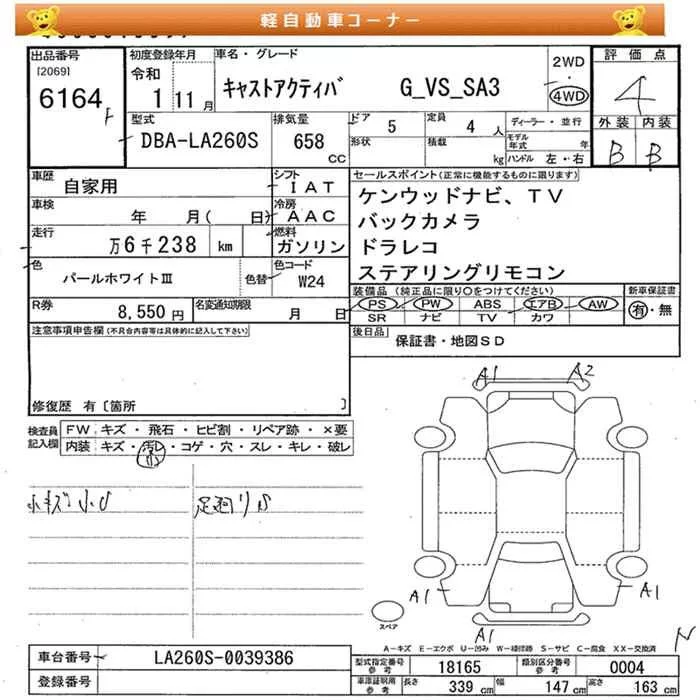 軽自動車コーナー
出品番号
[2069]
6164
F
初度登録年月
令和
1 11月
車名・グレード
キャストアクティバ G_VS_SA3
2WD
・
4WD
評価点
4
外装 内装
B B
型式
DBA-LA260S
排気量
658
CC
ドア 5
定員 4 人
形状
積載 kg
ディーラー・並行
モデル年式 年
ハンドル 左・右
車歴 自家用
シフト
IAT
車検 年 月( 日)
冷房
AAC
走行 万6千238 km
燃料
ガソリン
色
パールホワイトⅢ
色替
色コード
W24
R券 8,550 円
名変通知期限 月 日
セールスポイント(正常に機能するものに限ります)
ケンウッドナビ、TV
バックカメラ
ドラレコ
ステアリングリモコン
装備品(純正品に限り○をつけてください)
PS PW ABS エアB AW
SR ナビ TV カワ
新車保証書
有・無
後日品 保証書・地図SD
注意事項申告欄(不具合内容等は具体的に記入して下さい)
修復歴 有〔箇所 〕
検査員記入欄
FW キズ・飛石・ヒビ割・リペア跡・×要
内装 キズ・汚レ・コゲ・穴・スレ・キレ・破レ
小キズ 小U
足廻りS
A1 A2
A1 A1
A1
スペア
A－キズ E－エクボ U－凹み W－補修跡 S－サビ C－腐食 XX－交換済
車台番号 LA260S-0039386
登録番号
型式指定番号参考 18165
類別区分番号参考 0004
車庫証明用参考 長さ 339 cm 幅 147 cm 高さ 163 cm